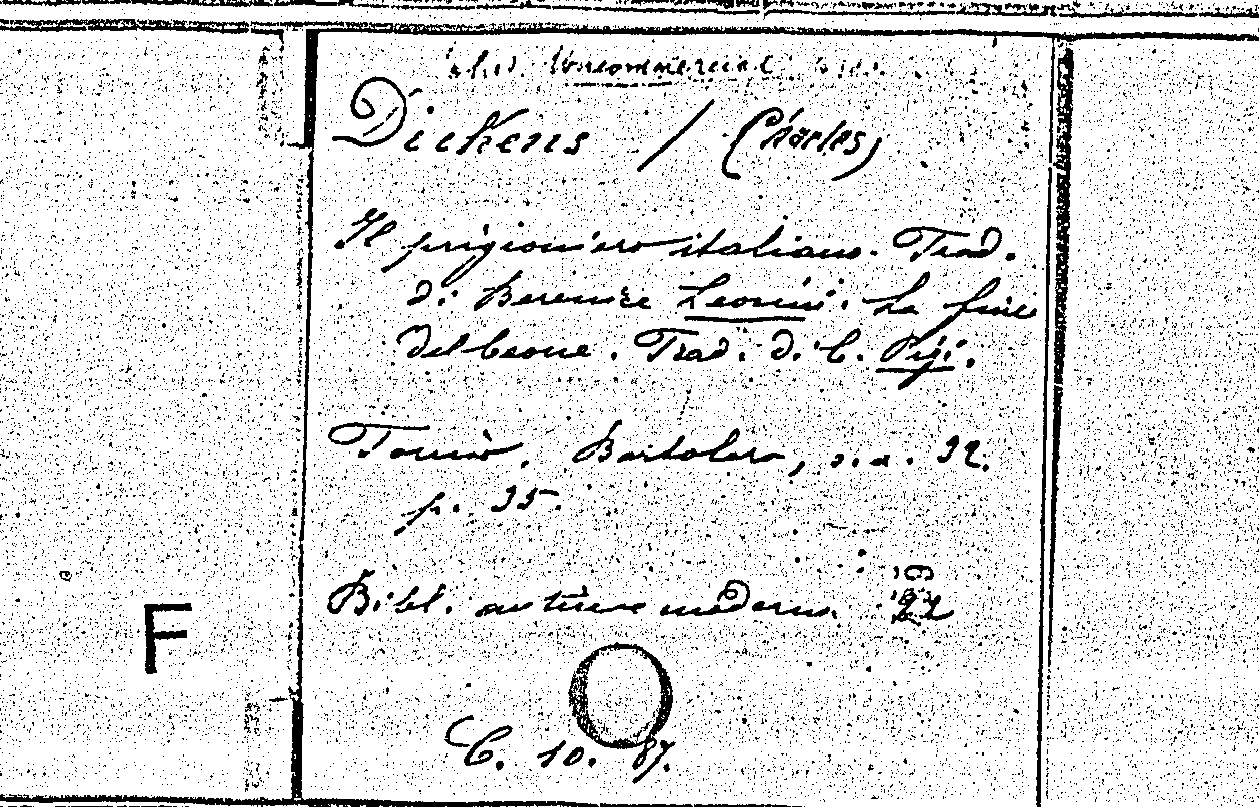 Uncommercial
Dickens / (Charles)
Il prigioniero italiano. Trad.
di Berenice Leonini. La fine
del beone. Trad. di C. Pigi.
Torino, Bartolero, s. a. 32.
p. 35.
Bibl. antica e moderna. 22
F
C. 10. 87.